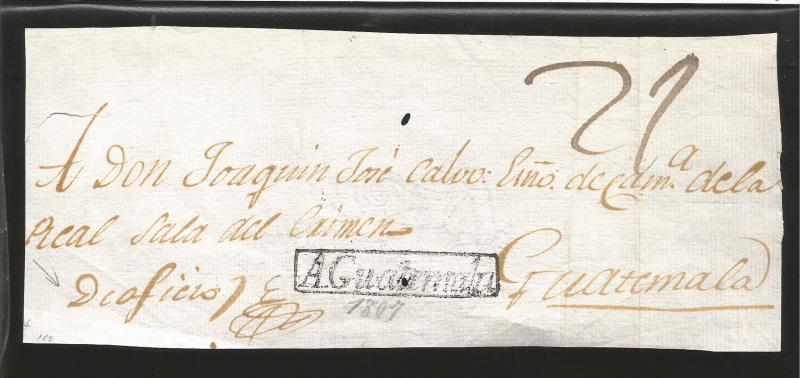 21
A Don Joaquin José Calvo: Essno. de Cám.ª de la
Real Sala del Crimen
De oficio
A. Guatemala
Guatemala